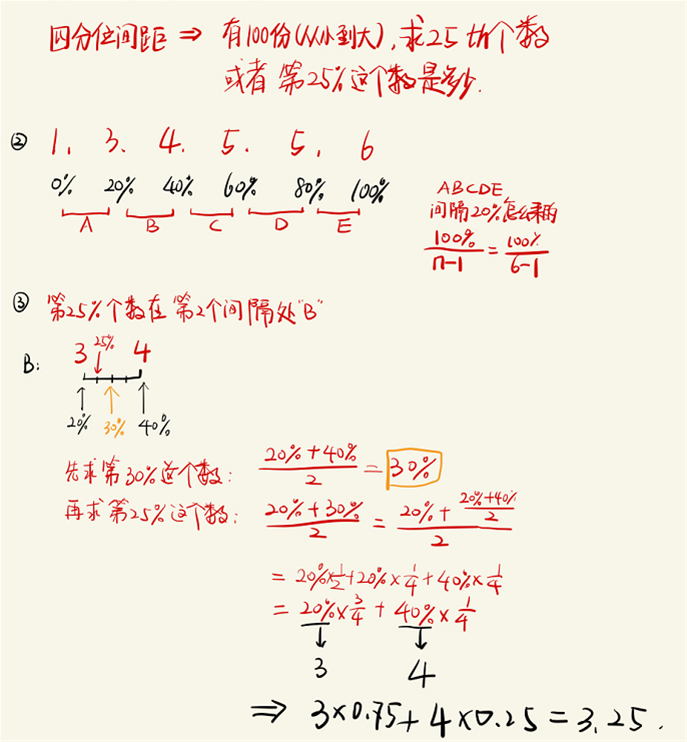 四分位间距 ⇒ 有100份(从小到大),求25th个数
或者 第25%这个数是多少.
② 1, 3. 4. 5. 5, 6
0% 20% 40% 60% 80% 100%
A B C D E
ABCDE
间隔20%怎么来的
100%/n-1 = 100%/6-1
③ 第25%个数在 第2个间隔处"B"
B: 3 25% 4
20% 30% 40%
先求第30%这个数: 20%+40%/2 = 30%
再求第25%这个数: 20%+30%/2 = 20%+20%+40%/2/2
= 20%×1/2+20%×1/4+40%×1/4
= 20%×3/4 + 40%×1/4
3 4
⇒ 3×0.75+4×0.25=3.25.